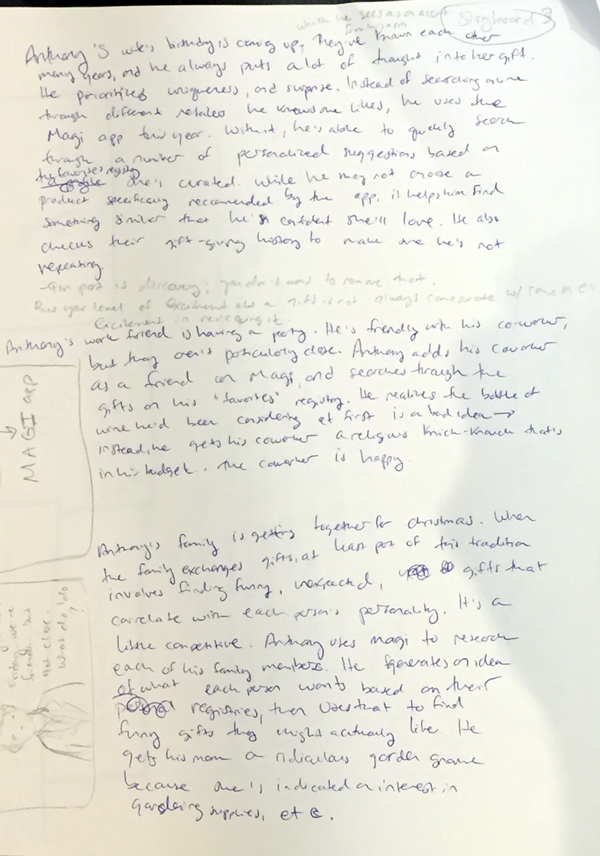 Storyboard 3
which he sees as an art form
Anthony's wife's birthday is coming up. They've known each other
many years, and he always puts a lot of thought into her gift.
He prioritizes uniqueness, and surprise. Instead of searching
through different retailers he knows she likes, he uses the
Magi app this year. With it, he's able to quickly search
through a number of personalized suggestions based on
the favorites registry
she's curated. While he may not choose a
product specifically recommended by the app, it helps him find
something similar that he's confident she'll love. He also
checks their gift-giving history to make sure he's not
repeating.
part is discovery; you don't want to remove that.
Your level of excitement gift is not always w/
Excitement in receiving it.
Anthony's work friend is having a party. He's friendly with his coworker,
but they aren't particularly close. Anthony adds his coworker
as a friend on Magi, and searches through the
gifts on his "favorites" registry. He realizes the bottle of
wine he'd been considering at first is a bad idea →
instead, he gets his coworker a religious knick-knack that's
in his budget. The coworker is happy.
MAGI app
Anthony's family is getting together for christmas. When
the family exchanges gifts, at least part of this tradition
involves finding funny, unexpected, gifts that
correlate with each person's personality. It's a
little competitive. Anthony uses magi to research
each of his family members. He generates an idea
of what each person wants based on their
registries, then uses that to find
funny gifts they might actually like. He
gets his mom a ridiculous garden gnome
because she's indicated an interest in
gardening supplies, etc.
not close.
What do I do
?